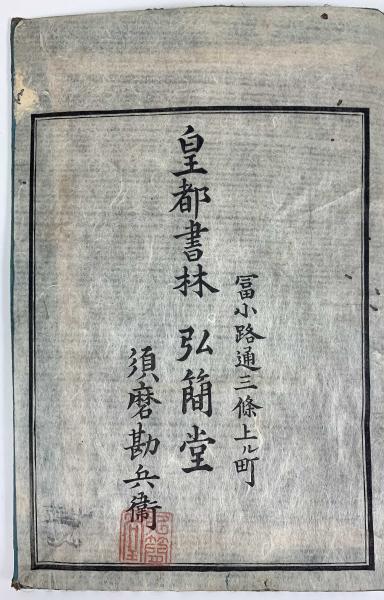 冨小路通三條上ル町
皇都書林 弘簡堂
須磨勘兵衞